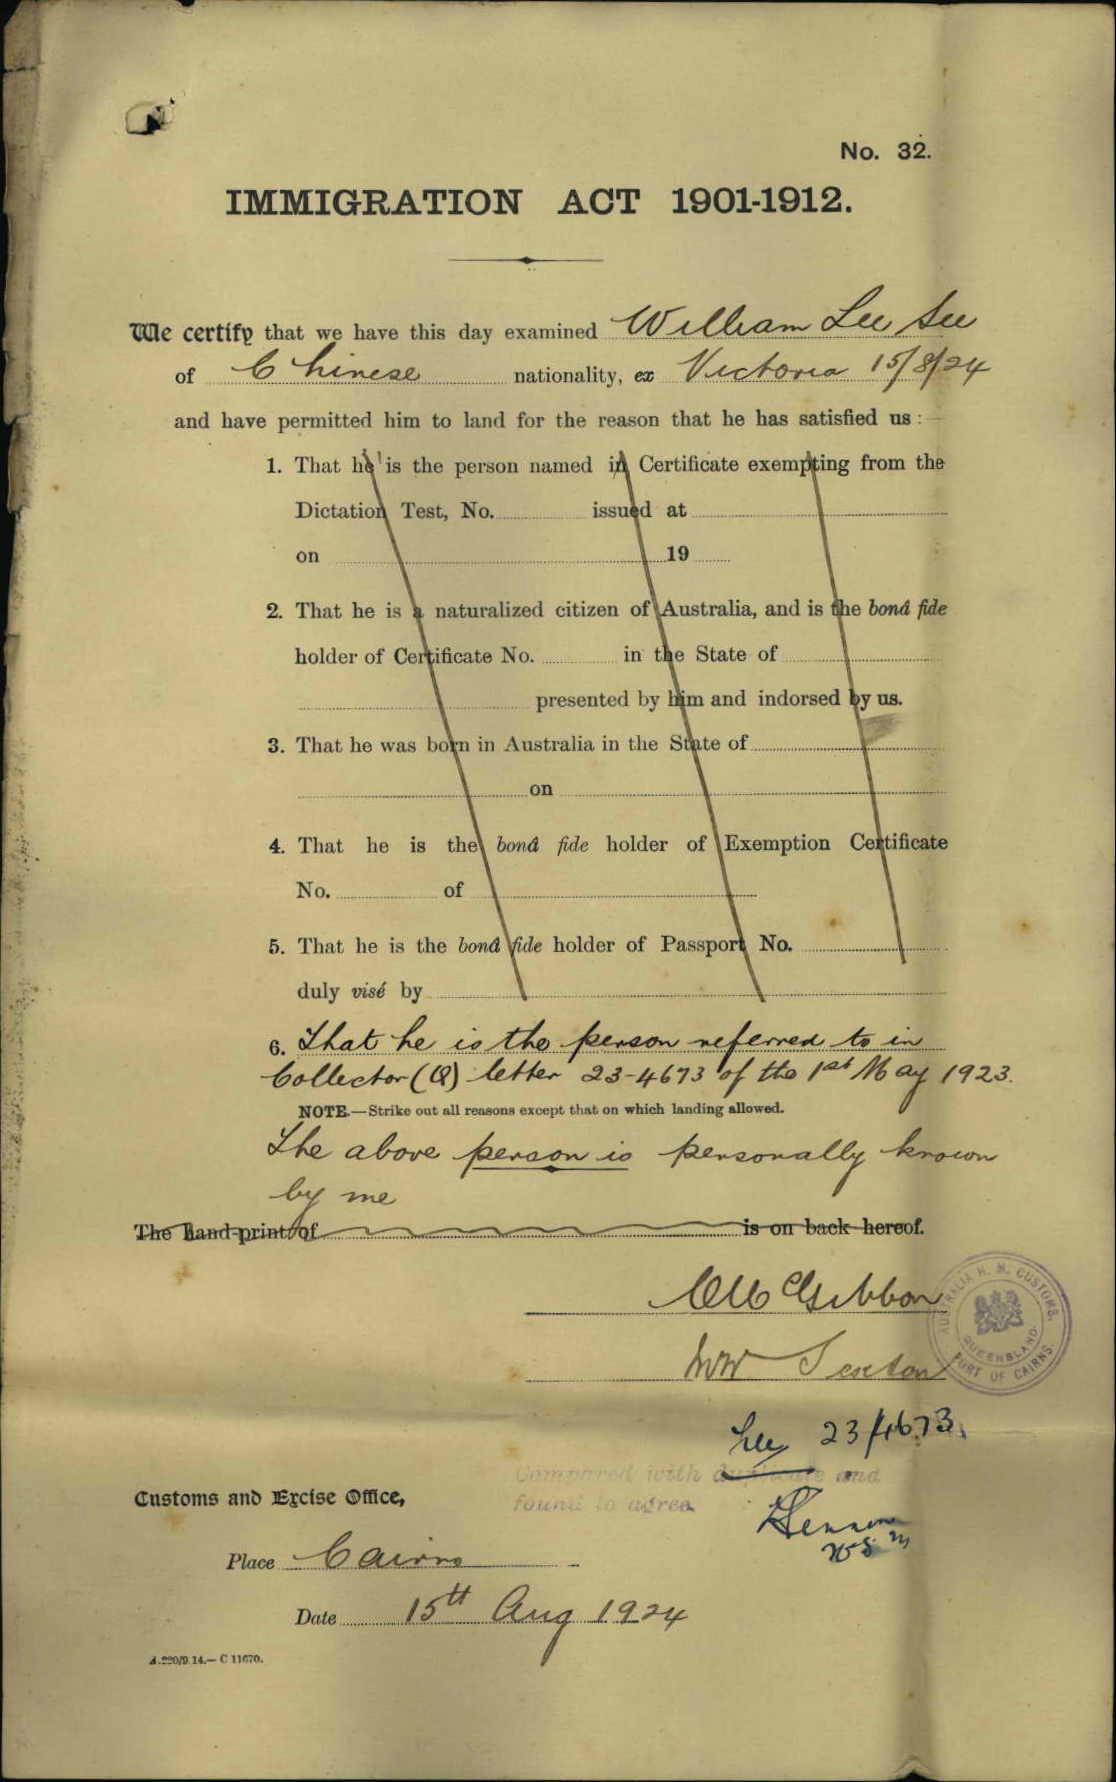 No. 32.
IMMIGRATION ACT 1901-1912.
We certify that we have this day examined William Lee See
of Chinese nationality, ex Victoria 15/8/24
and have permitted him to land for the reason that he has satisfied us :—
1. That he is the person named in Certificate exempting from the
Dictation Test, No. issued at
on 19
2. That he is a naturalized citizen of Australia, and is the bonâ fide
holder of Certificate No. in the State of
presented by him and indorsed by us.
3. That he was born in Australia in the State of
on
4. That he is the bonâ fide holder of Exemption Certificate
No. of
5. That he is the bonâ fide holder of Passport No.
duly visé by
6. That he is the person referred to in
Collector (Q) letter 23-4673 of the 1st May 1923.
NOTE.—Strike out all reasons except that on which landing allowed.
The above person is personally known
by me
The hand-print of is on back hereof.
Gibbon
Sexton
AUSTRALIA H. M. CUSTOMS.
QUEENSLAND.
PORT OF CAIRNS.
23/4673.
Compared with duplicate and
found to agree.
Customs and Excise Office,
Place Cairns
Date 15th Aug 1924
A.220/9.14.— C 11670.